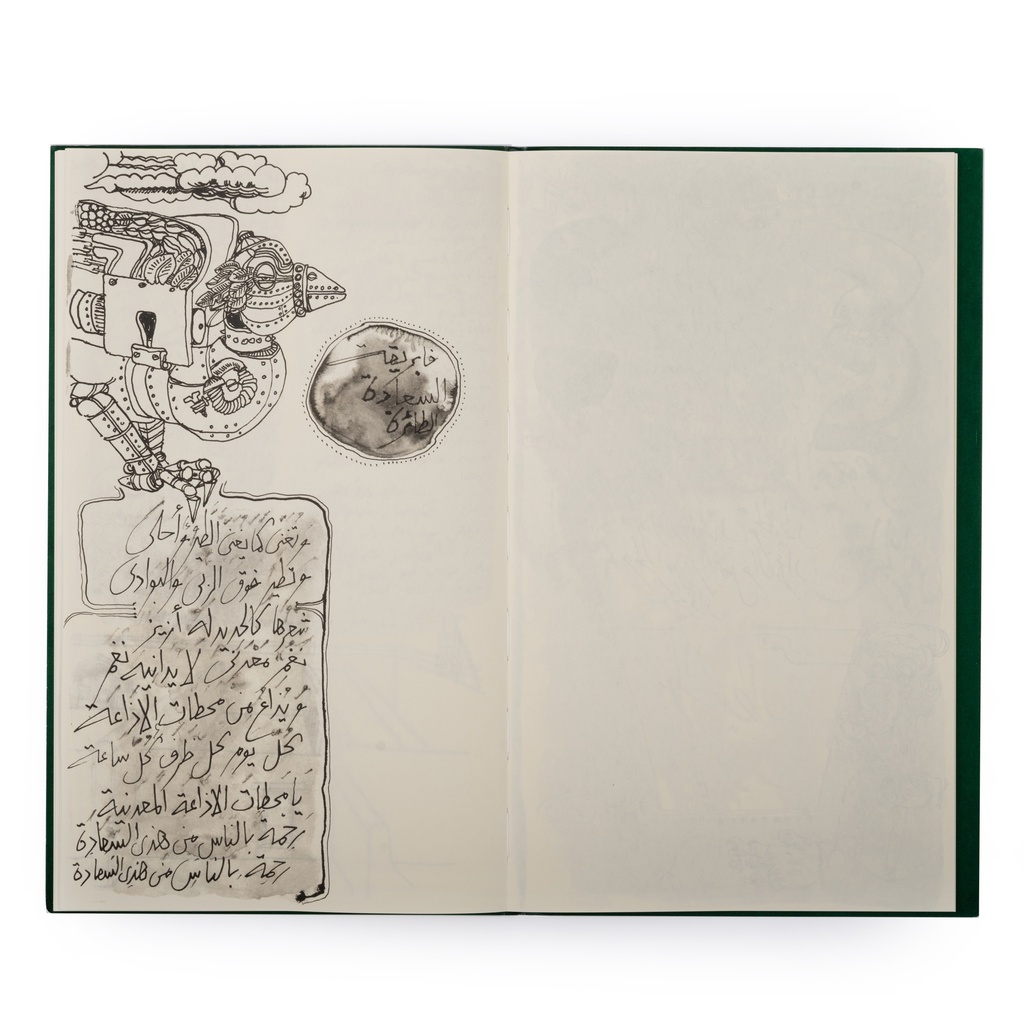 فابريقة
السعادة
الطائرة
وتغني كما يغني الطير وأحلى
وتطير فوق الربى والبوادي
شعرها كالحديد له أزيز
نغم معدني لا يدانيه نغم
ويذاع من محطات الإذاعة
كل يوم كل ظرف كل ساعة
يا محطات الاذاعة المعدنية
رحمة بالناس من هذي السعادة
رحمة بالناس من هذي السعادة